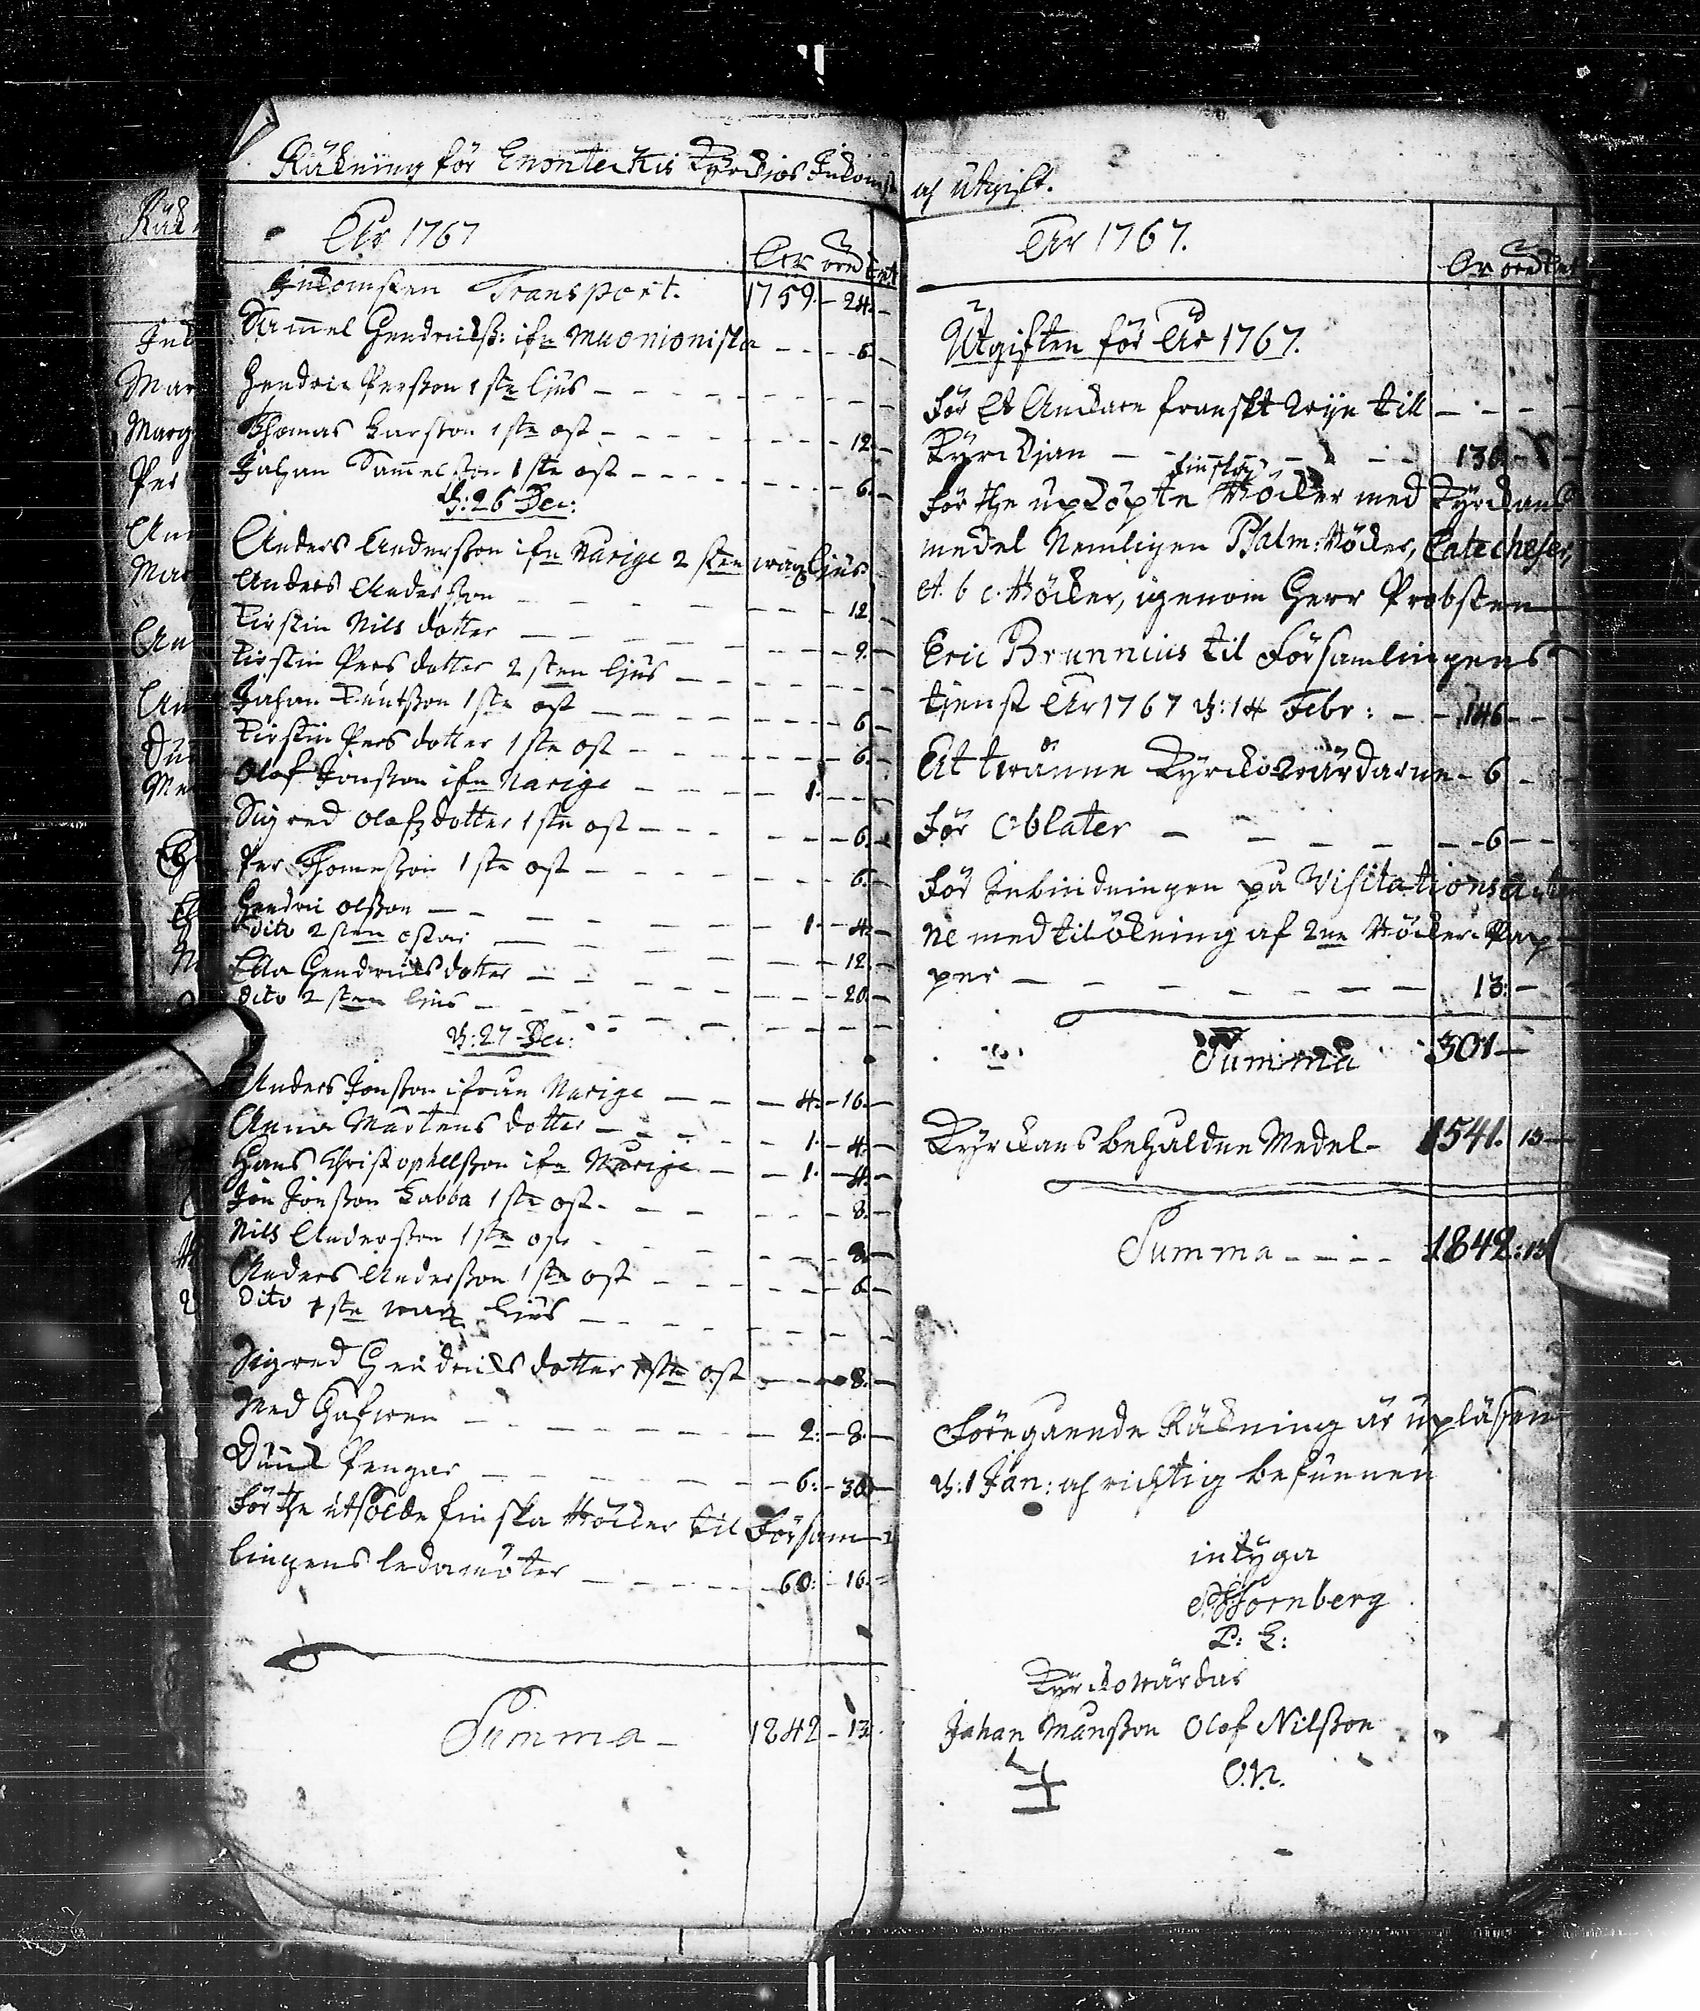 Räkning för Enontekis Kyrckios Inkomst
Åhr 1767
Inkomsten Transport. 1759 - 24 -
Sam̄el Hendrickß: ifn Muonioniska - - - 6 -
Hendric Perßon 1 ste ljus - - - - - - -
Thomas Larßon 1 ste ost - - - - - - 12 -
Johan Sam̄elßon 1 ste ost - - - - - - 6 -
d: 26 Dec:
Anders Anderßon ifn Narige 2 sten wax ljus
Anders Anderßon - - - - - - 12 -
Kirstin Nils dotter - - - - - - 9 -
Kirstin Pers dotter 2 sten ljus - - - - - -
Johan Knutßon 1 ste ost - - - - - - 6 -
Kirstin Pers dotter 1 ste ost - - - - - 6 -
Olof Jonßon ifn Narige - - - - 1 - - -
Sigred Olofz dotter 1 ste ost - - - - - 6 -
Per Thomeßon 1 ste ost - - - - - - 6 -
Hendric Olßon - - - - - - 1 - 4 -
Dito 2 sten ostar - - - - - - 12 -
Ella Hendricks dotter - - - - - - 20 -
Dito 2 sten ljus - - - - - - - -
d: 27 Dec:
Anders Jonßon ifrån Narige - - - 4 - 16 -
Anna Mårtens dotter - - - - - 1 - 4 -
Hans Christophellßon ifn Narige - - 1 - 4 -
Jon Jonßon Labba 1 ste ost - - - - - 8 -
Nils Anderßon 1 ste ost - - - - - 8 -
Anders Anderßon 1 ste ost - - - - - 6 -
Dito 1 ste wax ljus - - - - - - -
Sigred Hendricks dotter 1 ste ost - - - 8 -
Med Håfwen - - - - - - 2: - 8 -
Pengar - - - - - - 6: - 30 -
För the utsålde finska Böcker til Försam-
lingens ledamöter - - - - - 60: - 16 -
Summa - 1842 - 13
och Utgift.
Åhr 1767.
Utgiften för Åhr 1767.
För Et Anckare franskt Wijn till - - - -
Kyrckjan - - - - - 130 - - -
finska
För the upköpte Böcker med Kyrckans
medel Nemligen Psalm: Böcker, Catecheser,
et. b c. Böcker, igenom Herr Probsten
Eric Brunnius til Församlingens
tjenst Åhr 1767 d: 14 Febr: - - 146 - - -
At twänne Kyrckowärdarne - 6 - - -
För Oblater - - - - - - 6 - - -
För Inbindningen på Visitations Acter
ne med tilökning af 2ne Böcker Pap-
per - - - - - - - 13: - -
Summa 301 -
Kyrckans behåldne Medel - 1541. 13 -
Summa - - - - 1842: 13
Föregående Räkning är upläsen
d: 1 Jan: och richtig befunnen
intyga
Hornberg
Kyrckowärdar
Johan Månßon Olof Nilßon
O.N.